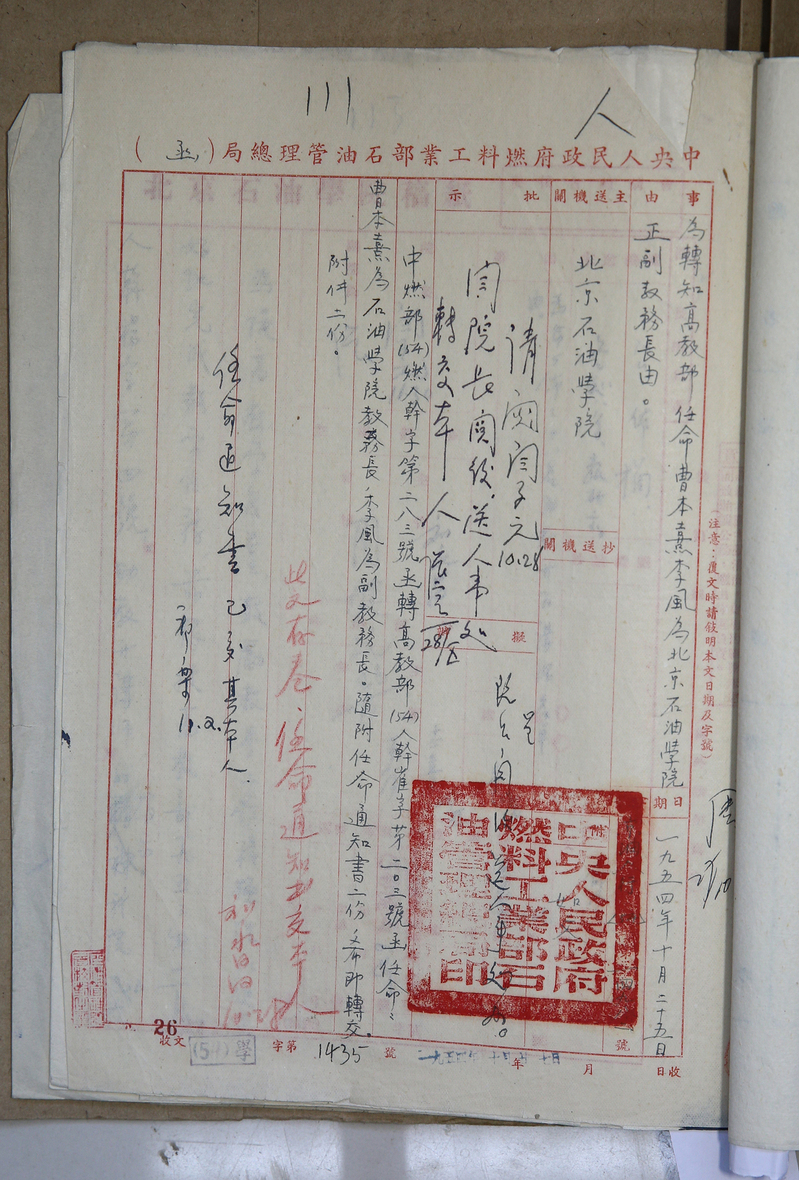 111
人
中央人民政府燃料工業部石油管理總局(函)
事由
為轉知高教部任命曹本熹李風為北京石油學院
正副教務長由。
主送機關
北京石油學院
抄送機關
批示
請閱閻子元
10.28
閻院長閱後,送人事處
轉交本人
擬
中燃部(54)燃人幹字第二八三號函轉高教部(54)人幹崔字第二〇三號函任命:
曹本熹為石油學院教務長,李風為副教務長。隨附任命通知書二份,希即轉交。
附件二份。
此文存卷,任命通知書交本人
10.28
任命通知書已交其本人.
11.2.
(注意:復文時請敘明本文日期及字號)
日期
一九五四年十月二十五日
附
號
中央人民政府燃料工業部石油管理總局印
26
收文
(54)學
字第
1435
號
年
月
日收